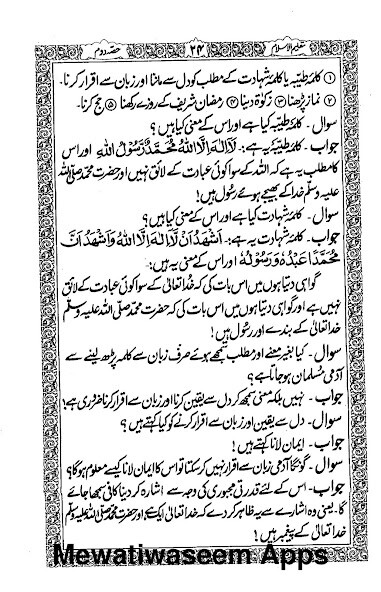 تعلیم الاسلام ۲۴ حصّہ دوم
① کلمۂ طیّبہ یا کلمۂ شہادت کے مطلب کو دل سے ماننا اور زبان سے اقرار کرنا۔
② نماز پڑھنا ③ زکوٰۃ دینا ④ رمضان شریف کے روزے رکھنا ⑤ حج کرنا۔
سوال۔ کلمۂ طیّبہ کیا ہے اور اس کے معنی کیا ہیں؟
جواب۔ کلمۂ طیّبہ یہ ہے: لَآ اِلٰهَ اِلَّا اللّٰهُ مُحَمَّدٌ رَّسُوْلُ اللّٰهِ اور اس
کا مطلب یہ ہے کہ اللہ کے سوا کوئی عبادت کے لائق نہیں اور حضرت محمّد صلّی اللہ
علیہ وسلّم خدا کے بھیجے ہوئے رسول ہیں!
سوال۔ کلمۂ شہادت کیا ہے اور اس کے معنی کیا ہیں؟
جواب۔ کلمۂ شہادت یہ ہے: اَشْهَدُ اَنْ لَّآ اِلٰهَ اِلَّا اللّٰهُ وَاَشْهَدُ اَنَّ
مُحَمَّدًا عَبْدُهٗ وَرَسُوْلُهٗ اور اس کے معنی یہ ہیں:
گواہی دیتا ہوں میں اس بات کی کہ خدا تعالیٰ کے سوا کوئی عبادت کے لائق
نہیں ہے اور گواہی دیتا ہوں میں اس بات کی کہ حضرت محمّد صلّی اللہ علیہ وسلّم
خدا تعالیٰ کے بندے اور رسول ہیں!
سوال۔ کیا بغیر معنے اور مطلب سمجھے ہوئے صرف زبان سے کلمہ پڑھ لینے سے
آدمی مُسلمان ہو جاتا ہے؟
جواب۔ نہیں بلکہ معنی سمجھ کر دل سے یقین کرنا اور زبان سے اقرار کرنا ضروری ہے!
سوال۔ دل سے یقین اور زبان سے اقرار کرنے کو کیا کہتے ہیں؟
جواب۔ ایمان لانا کہتے ہیں!
سوال۔ گونگا آدمی زبان سے اقرار نہیں کر سکتا تو اس کا ایمان لانا کیسے معلوم ہوگا؟
جواب۔ اس کے لئے قدرتی مجبوری کی وجہ سے اشارہ کر دینا کافی سمجھا جائے
گا۔ یعنی وہ اشارے سے یہ ظاہر کر دے کہ خدا تعالیٰ ایک ہے، اور حضرت محمّد صلّی اللہ علیہ وسلّم
خدا تعالیٰ کے پیغمبر ہیں!
Mewatiwaseem Apps